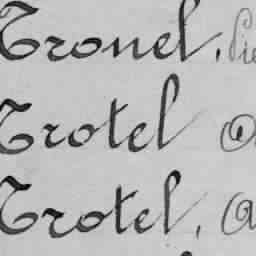 Tronel, Pie
Trotel A
Trotel, A